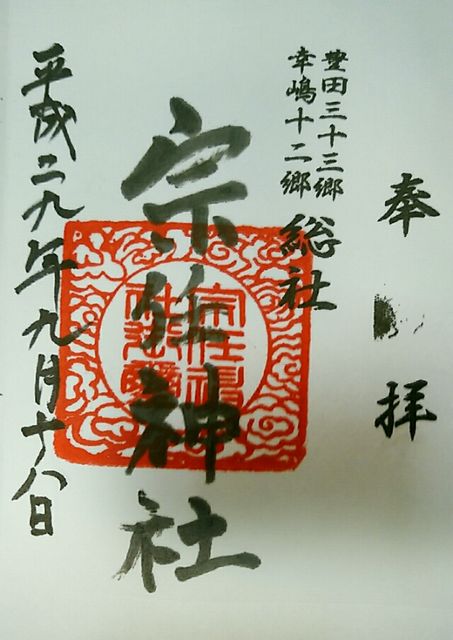 奉拝
豊田三十三郷
幸嶋十二郷
総社
宗任神社
平成二九年九月十八日